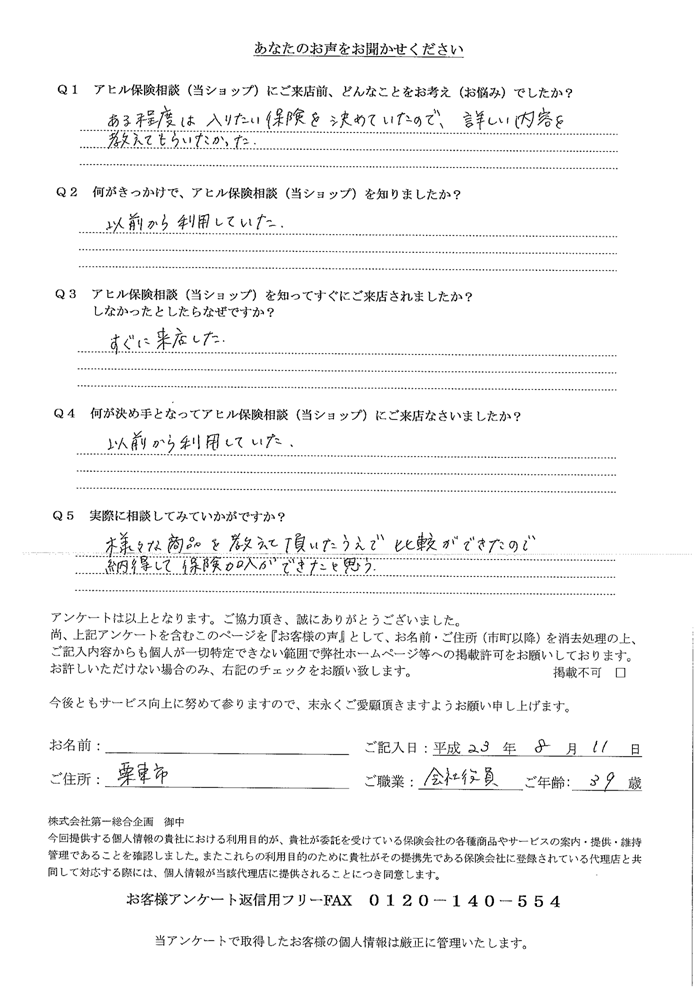 あなたのお声をお聞かせください
Q1 アヒル保険相談（当ショップ）にご来店前、どんなことをお考え（お悩み）でしたか？
ある程度は入りたい保険を決めていたので、詳しい内容を
教えてもらいたかった.
Q2 何がきっかけで、アヒル保険相談（当ショップ）を知りましたか？
以前から利用していた.
Q3 アヒル保険相談（当ショップ）を知ってすぐにご来店されましたか？
しなかったとしたらなぜですか？
すぐに来店した.
Q4 何が決め手となってアヒル保険相談（当ショップ）にご来店なさいましたか？
以前から利用していた.
Q5 実際に相談してみていかがですか？
様々な商品を教えて頂いたうえで比較ができたので
納得して保険加入ができたと思う.
アンケートは以上となります。ご協力頂き、誠にありがとうございました。
尚、上記アンケートを含むこのページを『お客様の声』として、お名前・ご住所（市町以降）を消去処理の上、
ご記入内容からも個人が一切特定できない範囲で弊社ホームページ等への掲載許可をお願いしております。
お許しいただけない場合のみ、右記のチェックをお願い致します。 掲載不可 □
今後ともサービス向上に努めて参りますので、末永くご愛顧頂きますようお願い申し上げます。
お名前： ご記入日：平成 23 年 8 月 11 日
ご住所： 栗東市 ご職業： 会社役員 ご年齢： 39 歳
株式会社第一総合企画 御中
今回提供する個人情報の貴社における利用目的が、貴社が委託を受けている保険会社の各種商品やサービスの案内・提供・維持
管理であることを確認しました。またこれらの利用目的のために貴社がその提携先である保険会社に登録されている代理店と共
同して対応する際には、個人情報が当該代理店に提供されることにつき同意します。
お客様アンケート返信用フリーFAX 0120－140－554
当アンケートで取得したお客様の個人情報は厳正に管理いたします。